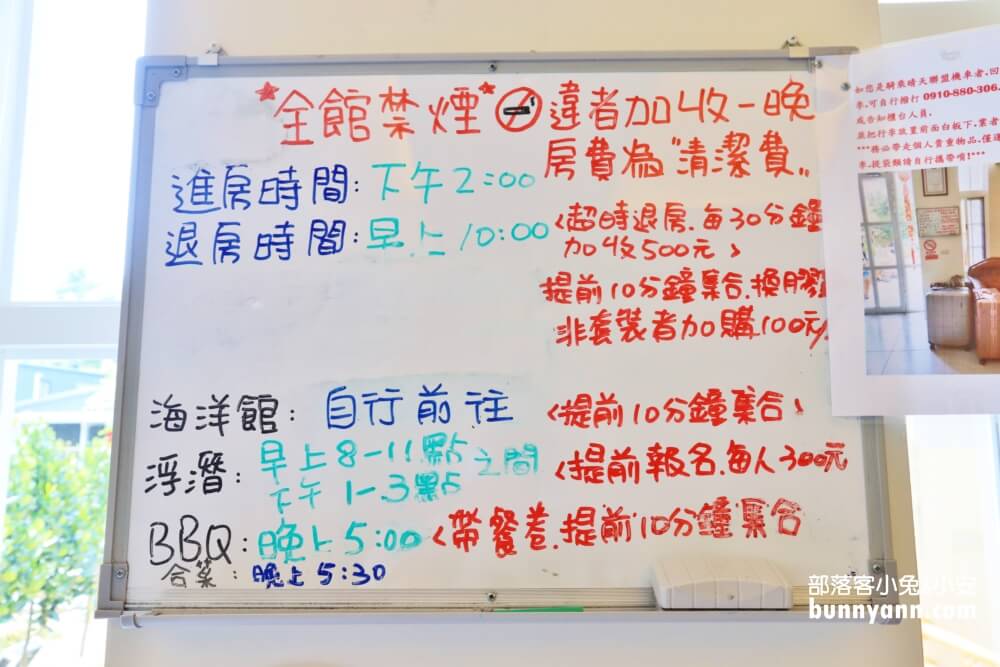 *全館禁煙* 違者加收一晚
房費為"清潔費"
進房時間:下午2:00
退房時間:早上10:00 <超時退房.每30分鐘
加收500元>
提前10分鐘集合.換膠
非套裝者加購100元/
海洋館:自行前往 <提前10分鐘集合>
浮潛:早上8-11點
下午1-3點 之間 <提前報名.每人300元
BBQ:晚上5:00 <帶餐卷.提前10分鐘集合
合菜:晚上5:30
如您是騎乘晴天聯盟機車者,回
車,可自行撥打 0910-880-306.
或告知櫃台人員.
並把行李放置前面白板下,業者
***務必帶走個人貴重物品,僅
車,提袋類請自行攜帶唷!***
部落客小兔&小安
bunnyann.com